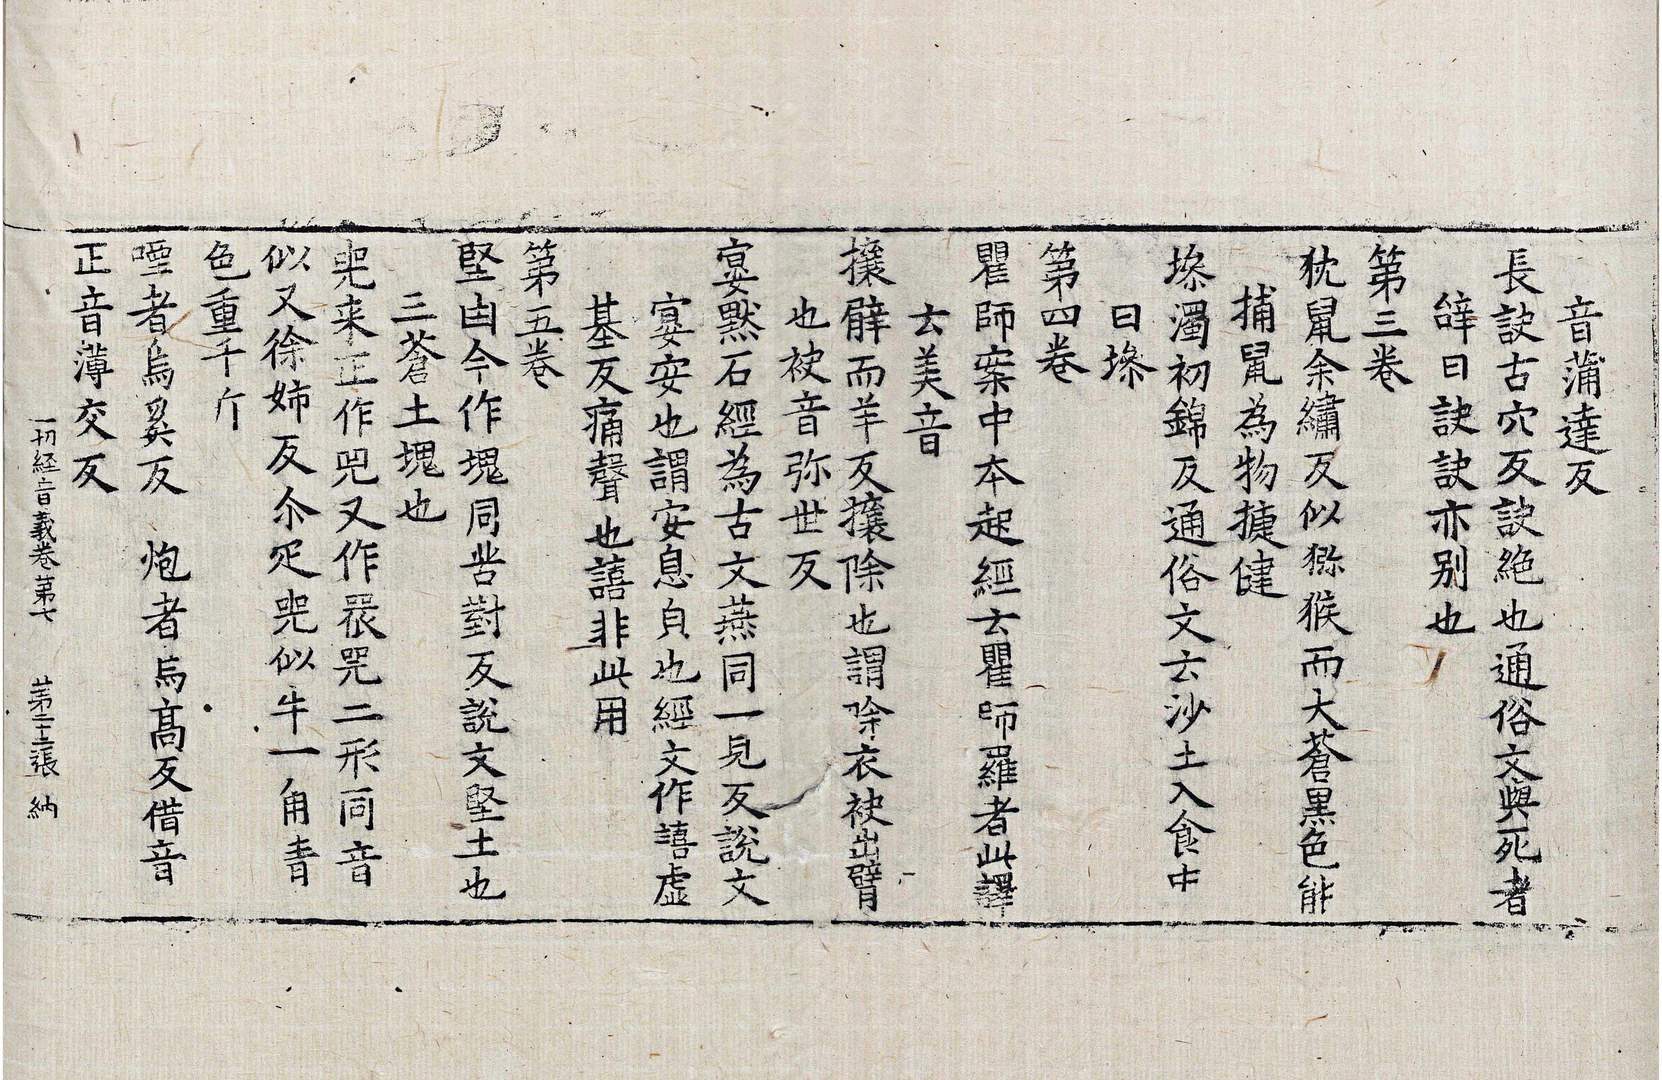 音蒲達反
長訣古穴反訣絶也通俗文與死者
辝曰訣訣亦别也
第三卷
狖鼠余繡反似獼猴而大蒼黑色能
捕鼠為物揵健
墋濁初錦反通俗文云沙土入食中
曰墋
第四卷
瞿師案中本起經云瞿師羅者此譯
云美音
攘臂而羊反攘除也謂除衣袂出臂
也袂音弥世反
宴默石經為古文燕同一見反說文
宴安也謂安息皃也經文作譆虛
基反痛聲也譆非此用
第五卷
堅由今作塊同苦對反說文堅土也
三蒼土塊也
兕来正作兕又作𤉡咒二形同音
似又徐姊反尒疋兕似牛一角青
色重千斤
堙者烏奚反 炮者烏髙反借音
正音薄交反
一切経音義卷第七 第二十二張 納